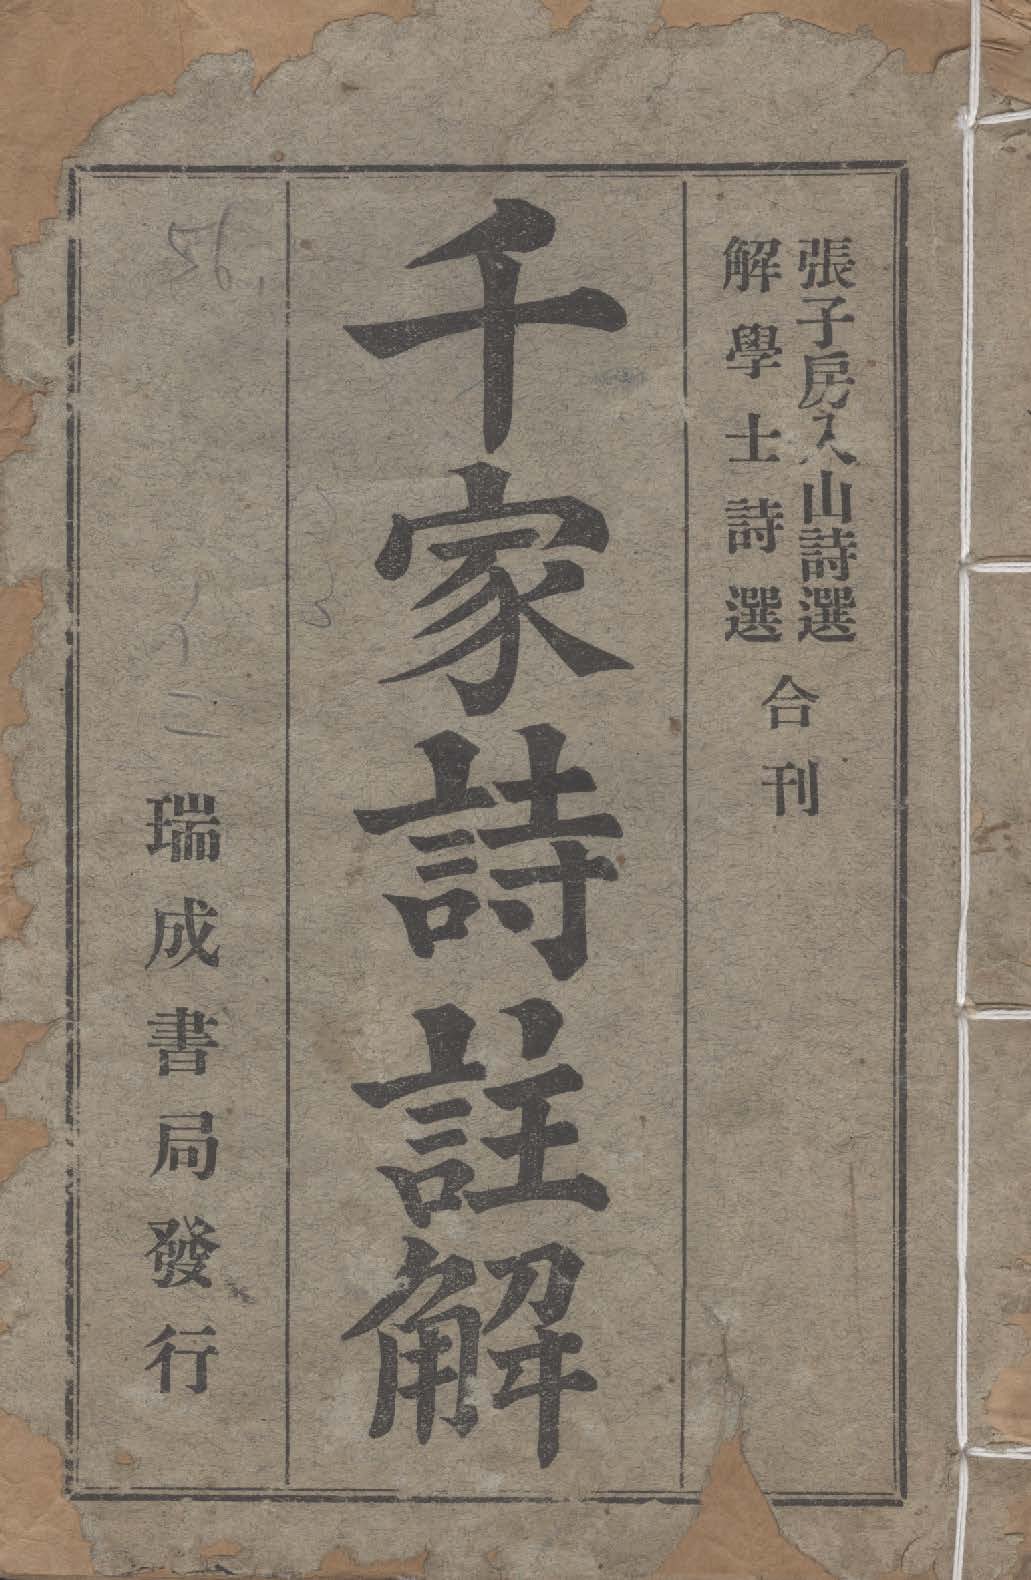 張子房入山詩選
解學士詩選
合刊
千家詩註解
瑞成書局發行